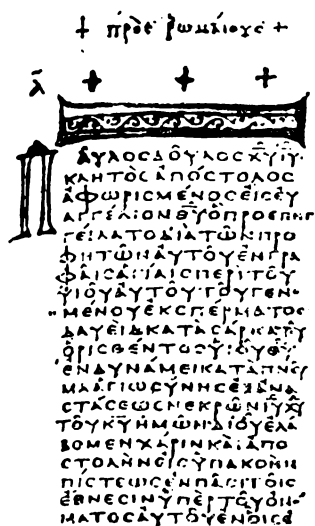 + πρὸς ρωμαίους +
Α̅ + + +
ΠΑΥΛΟϹΔΟΥΛΟϹΧ̅Υ̅Ι̅Υ̅
ΚΛΗΤΟϹΑΠΟϹΤΟΛΟϹ
ΑΦΩΡΙϹΜΕΝΟϹΕΙϹΕΥ
ΑΓΓΕΛΙΟΝΘ̅Υ̅ΟΠΡΟΕΠΗΓ
ΓΕΙΛΑΤΟΔΙΑΤΩΝΠΡΟ
ΦΗΤΩΝΑΥΤΟΥΕΝΓΡΑ
ΦΑΙϹΑΓΙΑΙϹΠΕΡΙΤΟΥ
ΥΙΟΥΑΥΤΟΥΤΟΥΓΕΝ
ΜΕΝΟΥΕΚϹΠΕΡΜΑΤΟϹ
ΔΑΥΕΙΔΚΑΤΑϹΑΡΚΑΤΟΥ
ΟΡΙϹΘΕΝΤΟϹΥΙΟΥΘ̅Υ̅
ΕΝΔΥΝΑΜΕΙΚΑΤΑΠΝΕΥ
ΜΑΑΓΙΩϹΥΝΗϹΕΞΑΝΑ
ϹΤΑϹΕΩϹΝΕΚΡΩΝΙ̅Υ̅Χ̅Υ̅
ΤΟΥΚ̅Υ̅ΗΜΩΝΔΙΟΥΕΛΑ
ΒΟΜΕΝΧΑΡΙΝΚΑΙΑΠΟ
ϹΤΟΛΗΝΕΙϹΥΠΑΚΟΗΝ
ΠΙϹΤΕΩϹΕΝΠΑϹΙΤΟΙϹ
ΕΘΝΕϹΙΝΥΠΕΡΤΟΥΟΝΟ
ΜΑΤΟϹΑΥΤΟΥΕΝΟΙϹΕ